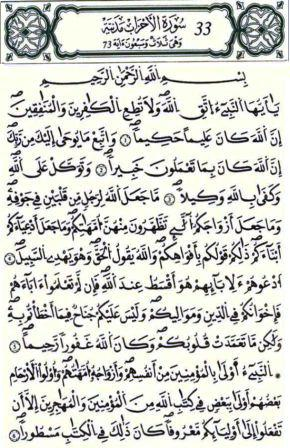 33 سورة الأحزاب مدنية
وهي ثلاث وسبعون آية 73
بسم الله الرحمن الرحيم
يا أيها النبيء اتق الله ولا تطع الكافرين والمنافقين
إن الله كان عليما حكيما 1 واتبع ما يوحى إليك من ربك
إن الله كان بما تعملون خبيرا 2 وتوكل على الله
وكفى بالله وكيلا 3 ما جعل الله لرجل من قلبين في جوفه
وما جعل أزواجكم التي تظهرون منهن أمهاتكم وما جعل أدعياءكم
أبناءكم ذلكم قولكم بأفواهكم والله يقول الحق وهو يهدي السبيل 4
ادعوهم لآبائهم هو أقسط عند الله فإن لم تعلموا آباءهم
فإخوانكم في الدين ومواليكم وليس عليكم جناح فيما أخطأتم به
ولكن ما تعمدت قلوبكم وكان الله غفورا رحيما 5
النبيء أولى بالمؤمنين من أنفسهم وأزواجه أمهاتهم وأولوا الأرحام
بعضهم أولى ببعض في كتاب الله من المؤمنين والمهاجرين إلا أن
تفعلوا إلى أوليائكم معروفا كان ذلك في الكتاب مسطورا 6